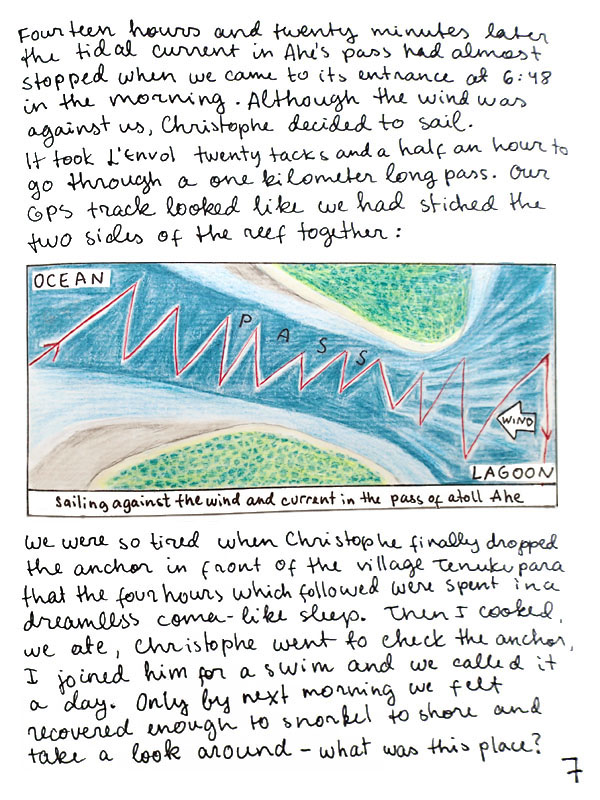 Fourteen hours and twenty minutes later
the tidal current in Ahe's pass had almost
stopped when we came to its entrance at 6:48
in the morning. Although the wind was
against us, Christophe decided to sail.
It took L'Envol twenty tacks and a half an hour to
go through a one kilometer long pass. Our
GPS track looked like we had stiched the
two sides of the reef together:
OCEAN
PASS
WIND
LAGOON
Sailing against the wind and current in the pass of atoll Ahe
We were so tired when Christophe finally dropped
the anchor in front of the village Tenukupara
that the four hours which followed were spent in a
dreamless coma-like sleep. Then I cooked,
we ate, Christophe went to check the anchor,
I joined him for a swim and we called it
a day. Only by next morning we felt
recovered enough to snorkel to shore and
take a look around - what was this place?
7